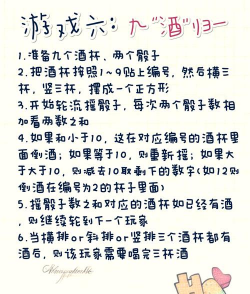 游戏六：九“酒”归一
1.准备九个酒杯，两个骰子
2.把酒杯按照1~9贴上编号，然后横三
杯，竖三杯，摆成一个正方形
3.开始轮流摇骰子，每次两个骰子数相
加看两数之和
4.如果和小于10，这在对应编号的酒杯里
面倒酒；如果等于10，则重新摇；如果大
于大于10，则减去10取剩下的数字(如12则
倒酒在编号为2的杯子里面)
5.摇骰子数之和对应的酒杯如已经有酒
，则继续轮到下一个玩家
6.当横排or斜排or竖排三个酒杯都有
酒后，则该玩家需要喝完三杯酒